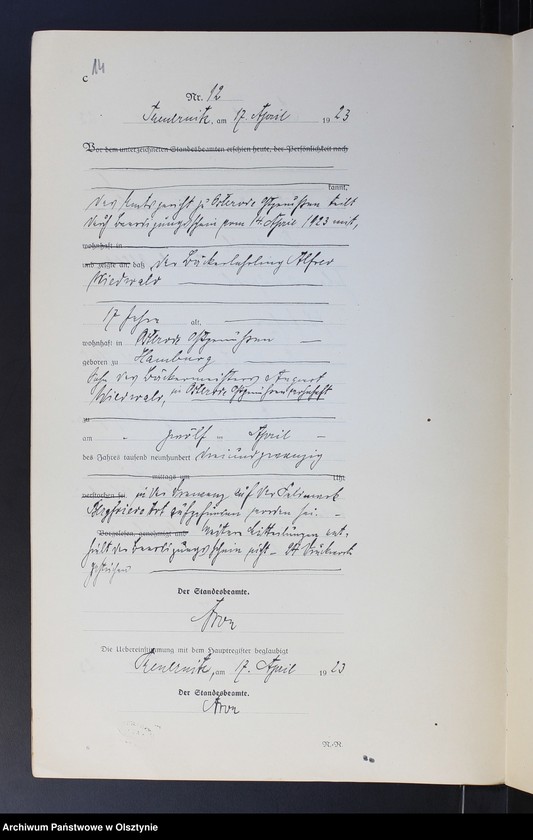 14
C
Nr. 12
am 17 April 1923
Vor dem unterzeichneten Standesbeamten erschien heute, der Persönlichkeit nach
kannt,
Das Amtsgericht zu Osterode Ostpreußen teilt
durch Beerdigungsschein vom 14. April 1923 mit,
wohnhaft in
und zeigte an, daß der Bäckerlehrling Alfred
Wiedwald
17 Jahre alt,
wohnhaft in Osterode Ostpreußen
geboren zu Hamburg
Sohn des Bäckermeisters August
Wiedwald, in Osterode Ostpreußen wohnhaft
zu
am zwölf ten April
des Jahres tausend neunhundert dreiundzwanzig
mittags um Uhr
verstorben sei in der Drewenz auf der Feldmark
Bergfriede tot aufgefunden worden sei.
Vorgelesen, genehmigt und Weitere Mitteilungen ent-
hält der Beerdigungsschein nicht. 24 Druckworte
gestrichen
Der Standesbeamte.
Die Uebereinstimmung mit dem Hauptregister beglaubigt
am 17. April 1923
Der Standesbeamte.
R.-R.
Archiwum Państwowe w Olsztynie